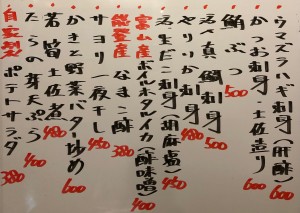 ウマズラハギ刺身(肝酢) 600
かつお刺身・土佐造り 600
鮪ぶつ 500
活〆真鯛刺身 500
やりいか刺身 480
活生だこ刺身(胡麻塩) 450
富山産ボイルホタルイカ(酢味噌) 400
能登産なまこ酢 380
サヨリ一夜干し 450
かきと野菜バター炒め 600
若筍土佐煮 480
たらの芽天ぷら 400
自家製ポテトサラダ 380